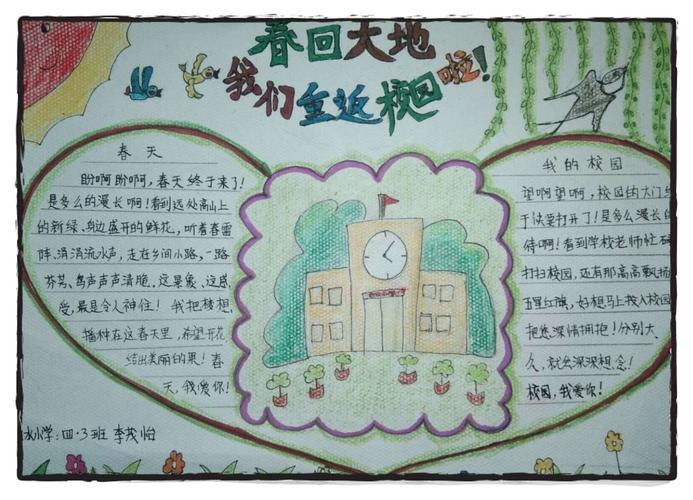 春回大地
我们重返校园啦！
春天
盼啊盼啊，春天终于来了！
是多么的漫长啊！看到远处高山上
的新绿、身边盛开的鲜花，听着春雷
阵阵、涓涓流水声，走在乡间小路，一路
芬芳、鸟声声声清脆。这景象、这感
受，最是令人神往！我把梦想
播种在这春天里，希望开花
结出美丽的果！春
天，我爱你！
我的校园
望啊望啊，校园的大门终
于快要打开了！是多么漫长的
待啊！看到学校老师忙碌
打扫校园，还有那高高飘扬
五星红旗，好想马上投入校园
把您深情拥抱！分别太
久，就会深深想念！
校园，我爱你！
水小学：四·3班 李茂怡